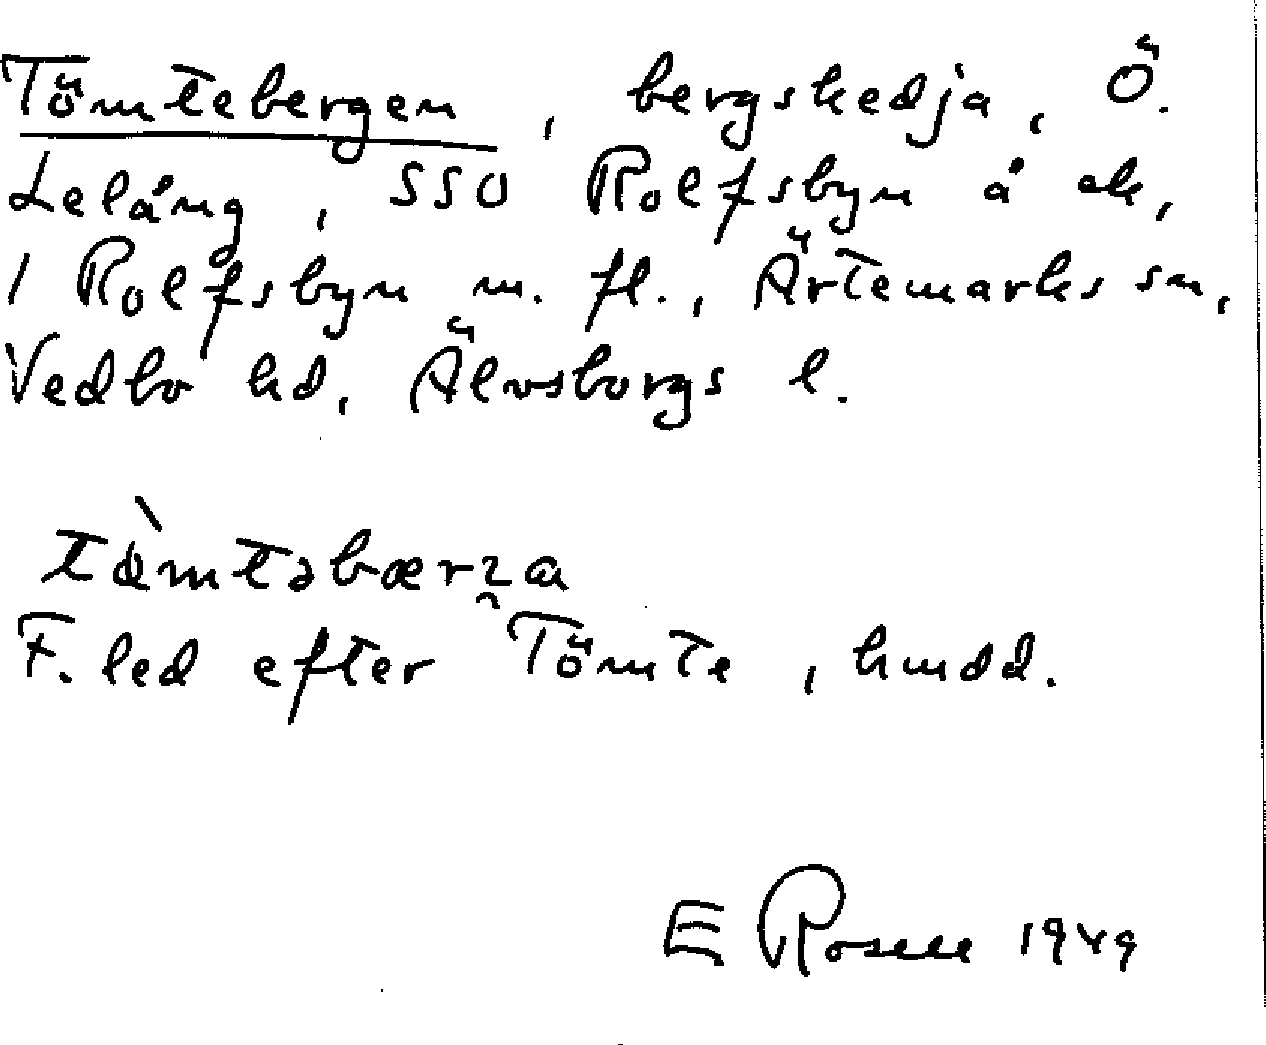 Tömtebergen, bergskedja, Ö.
Lelång, SSO Rolfsbyn å ek,
1 Rolfsbyn m. fl., Ärtemarks sn,
Vedbo hd, Älvsborgs l.
F. led efter Tömte, hmdd.
E Rosell 1949